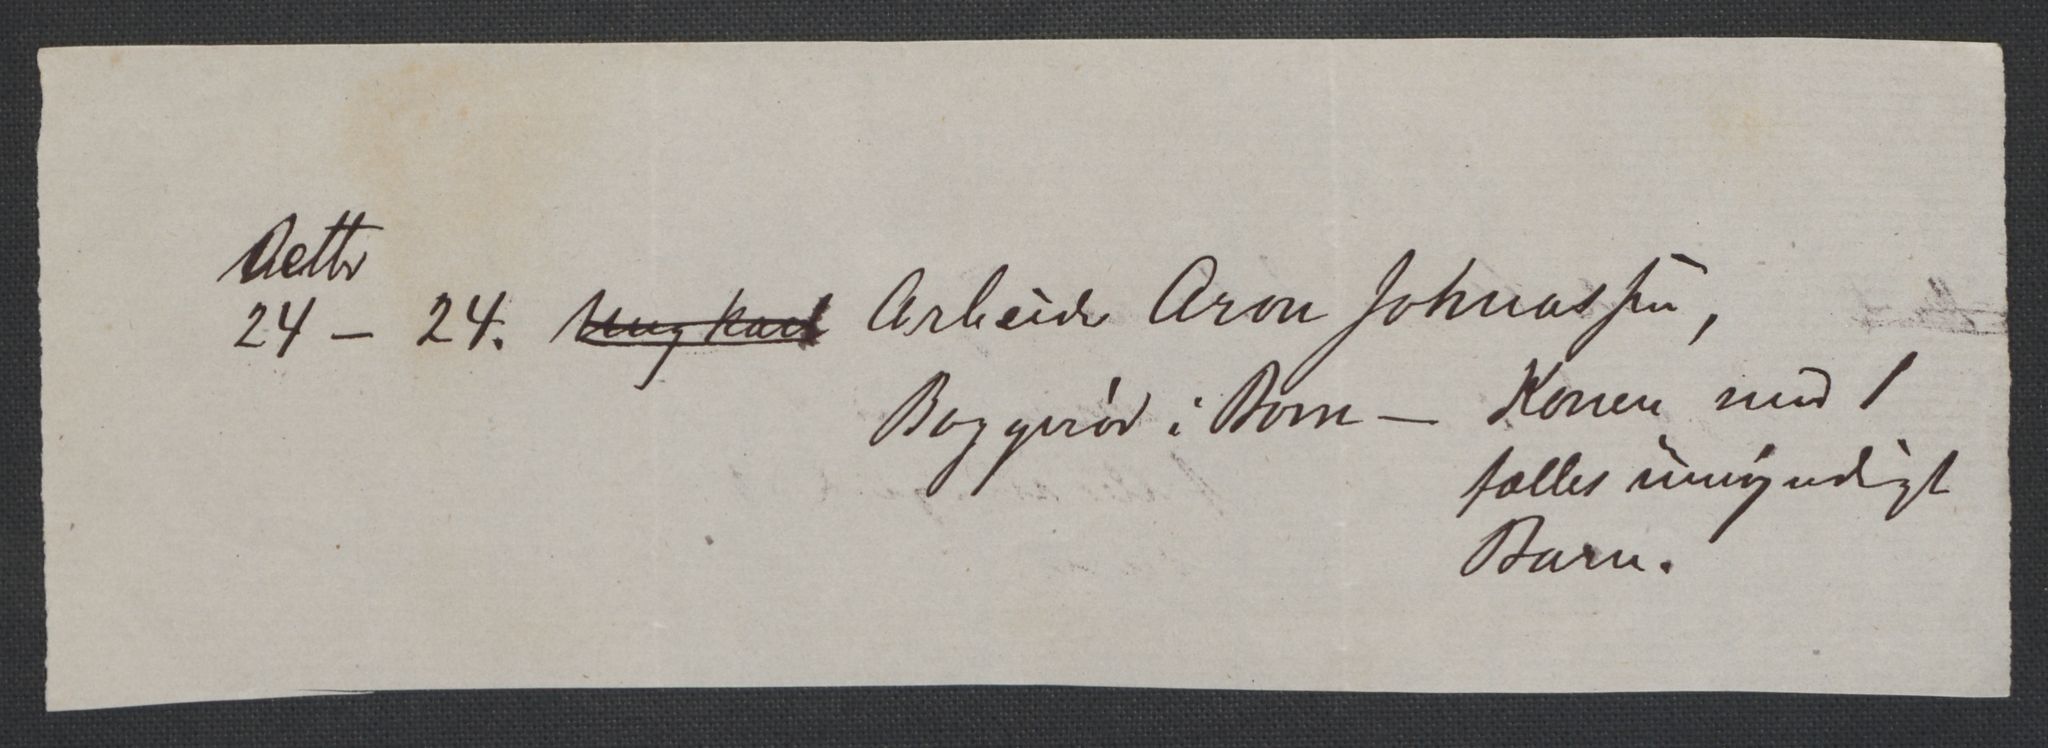 Aetbr
24 – 24. Ungkarl Arbeidr Aron Johnassen,
Boggerød i Bom – Konen med 1
fælles umyndigt
Barn.